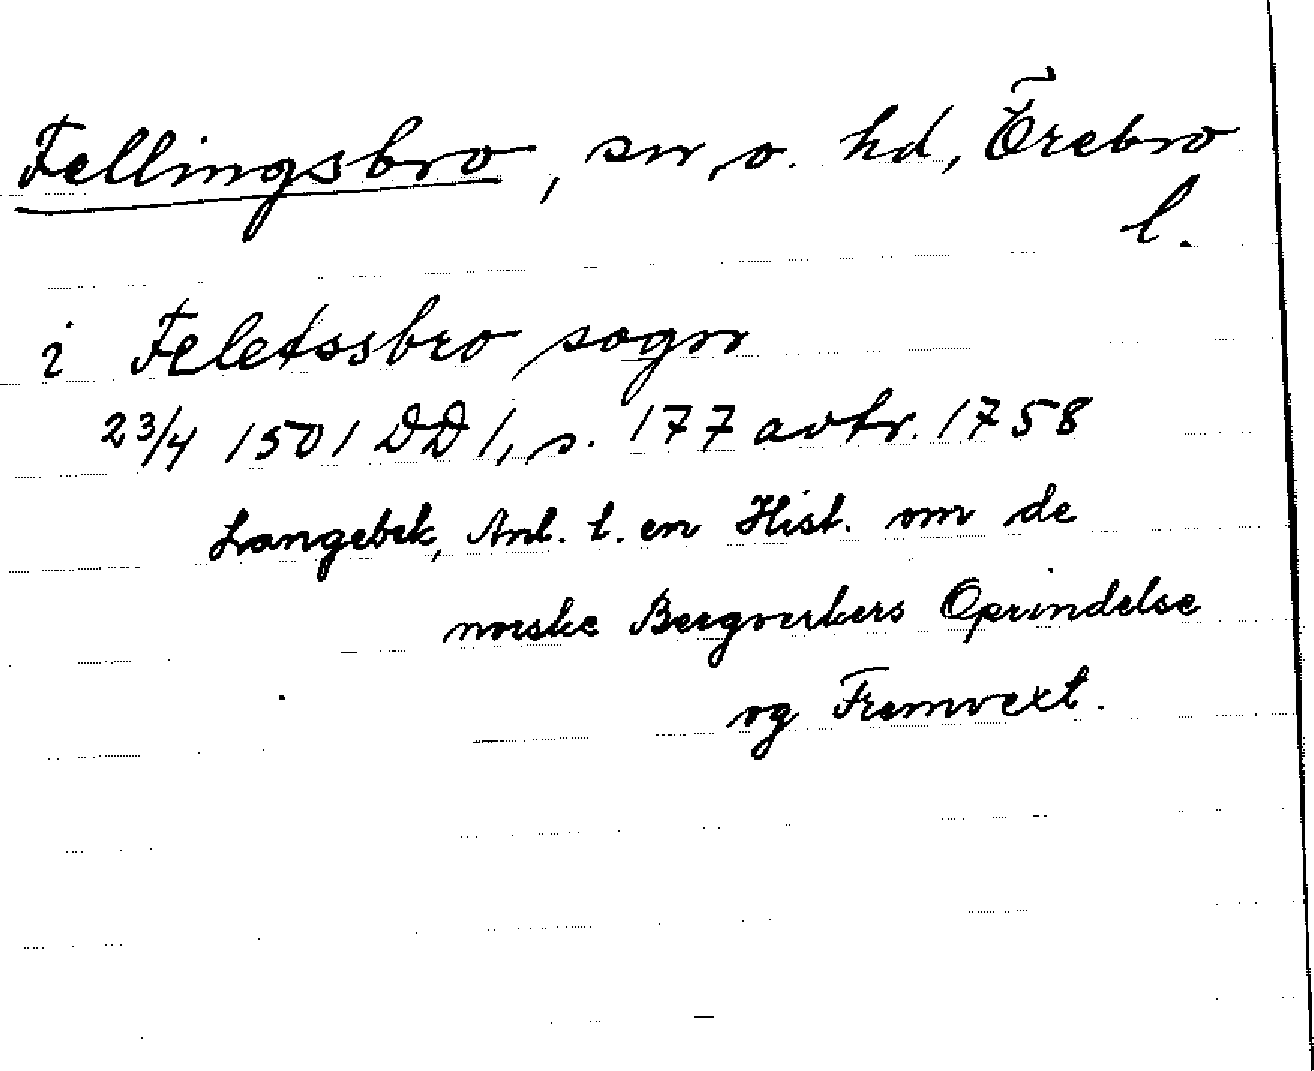 Fellingsbro, sn o. hd, Örebro
l.
i Feletssbro sogn
23/4 1501 DD 1, s. 177 avtr. 1758
Langebek, Anl. t. en Hist. om de
norske Bergverkers Oprindelse
og Fremvext.